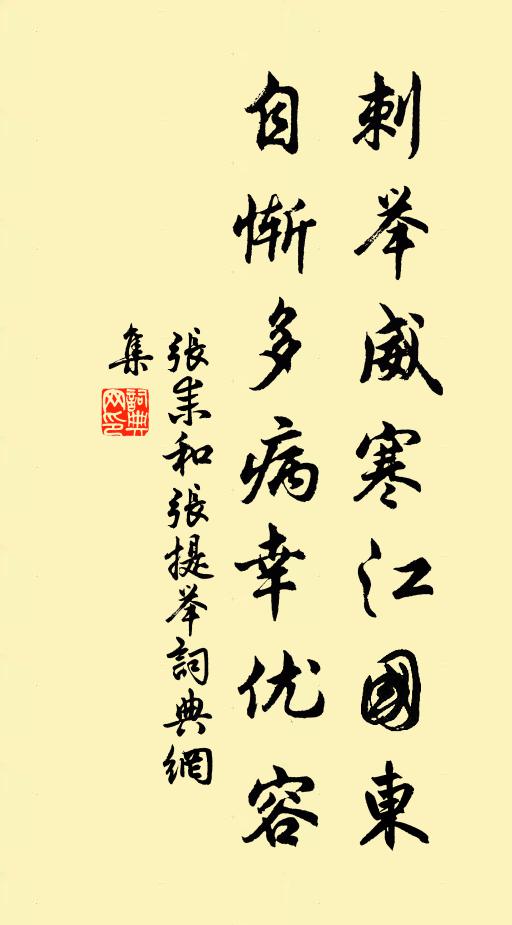 刺举威寒江國東
自慚多病幸优容
張耒和張提举詞典網
集
詞典
网印